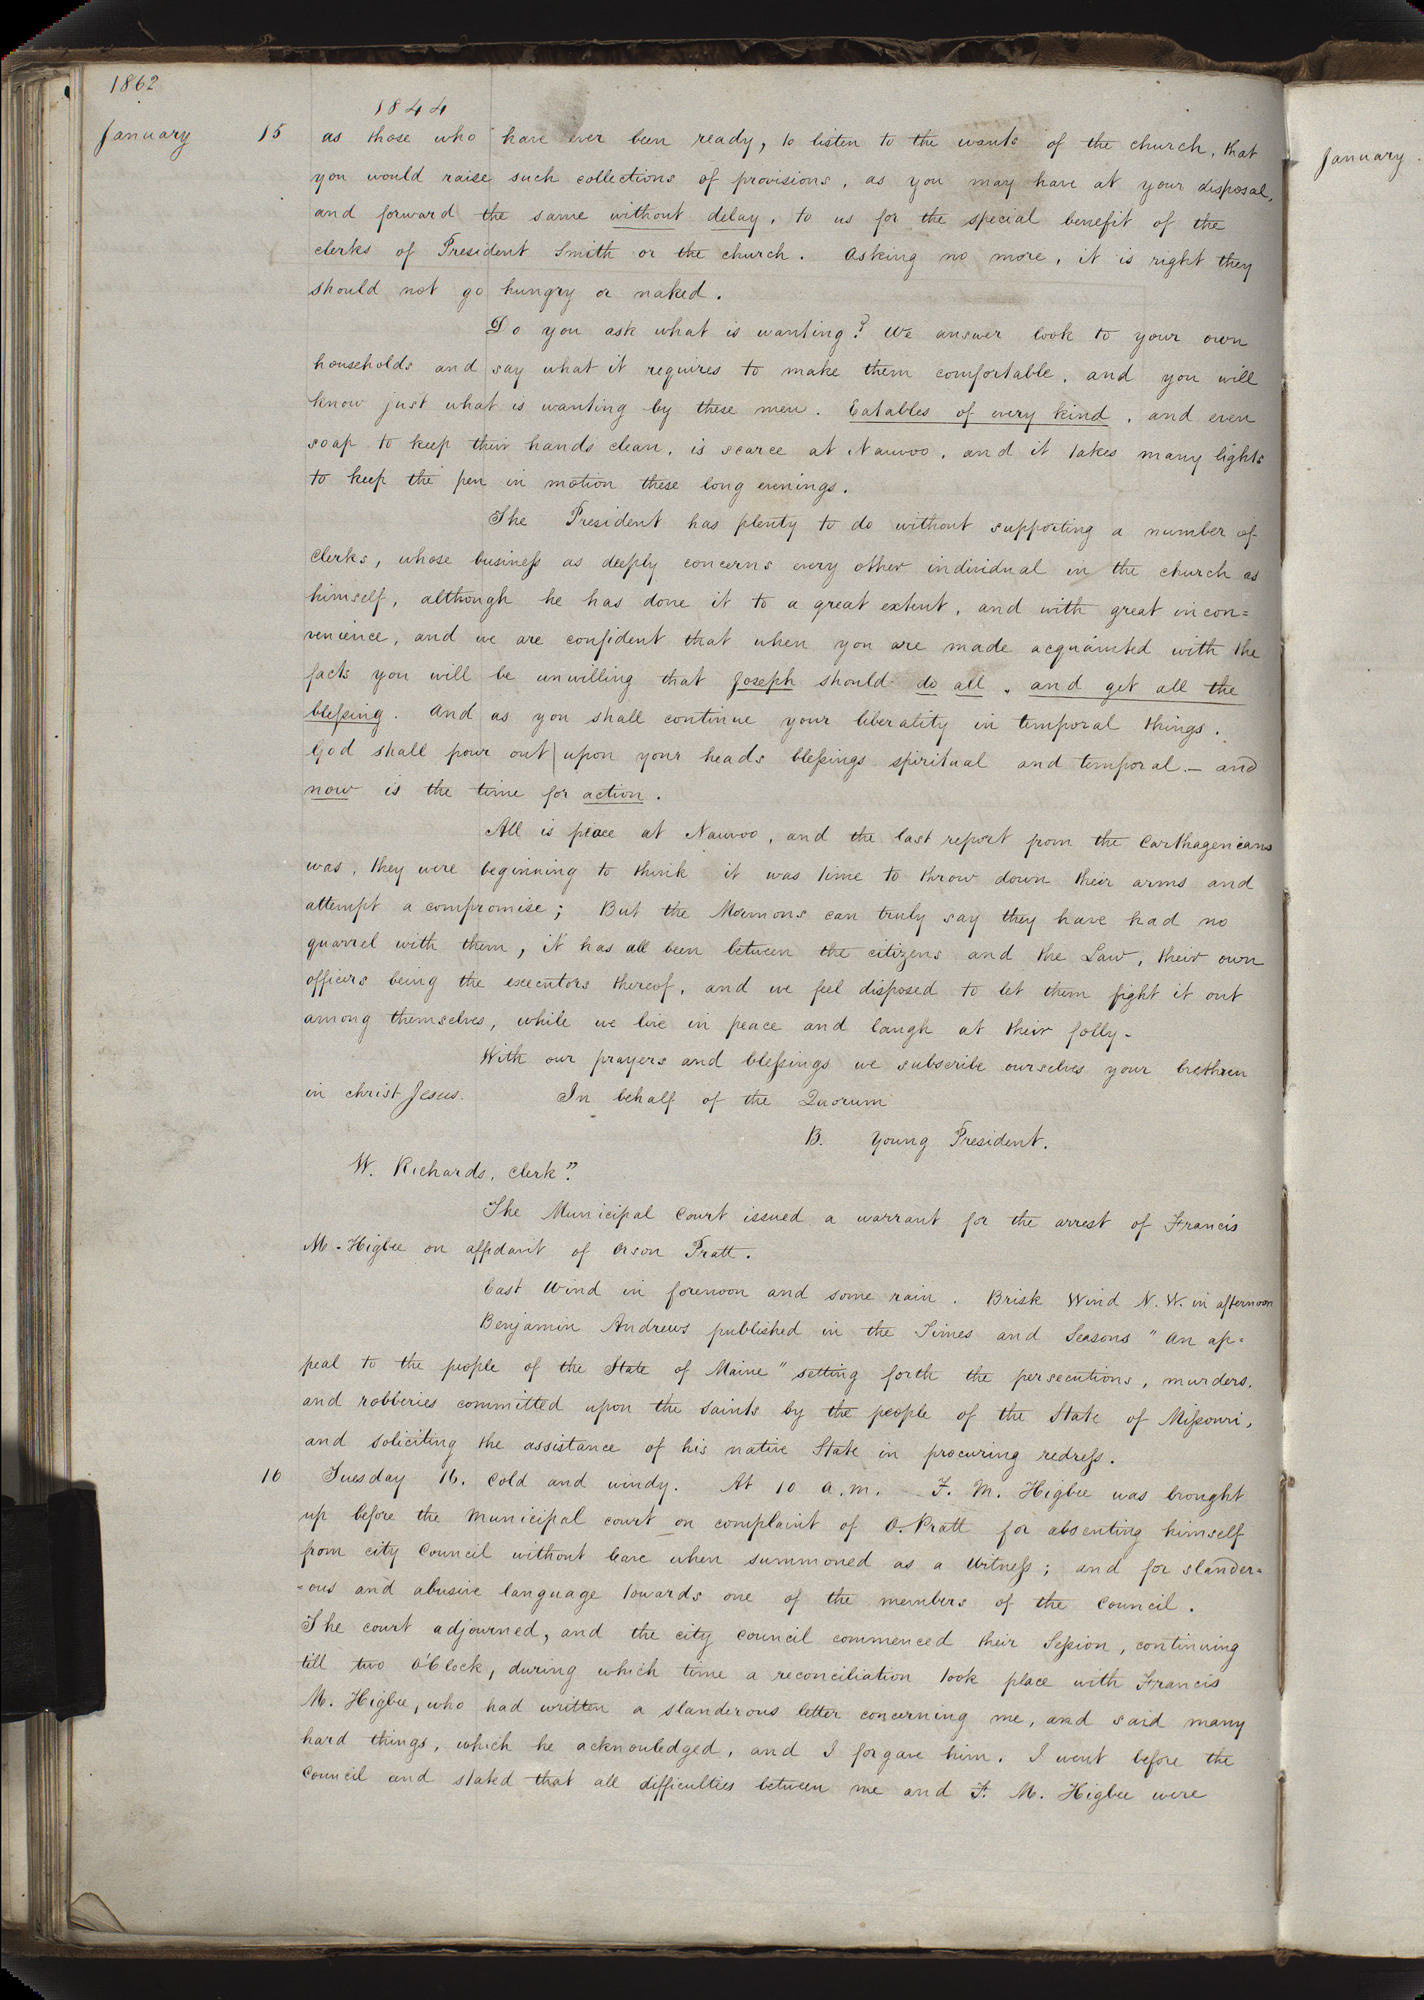 1862
1844
January 15 as those who have ever been ready, to listen to the wants of the church, that
you would raise such collections of provisions, as you may have at your disposal,
and forward the same without delay, to us for the special benefit of the
clerks of President Smith or the church. Asking no more, it is right they
should not go hungry or naked.
Do you ask what is wanting? We answer look to your own
households and say what it requires to make them comfortable, and you will
know just what is wanting by these men. Eatables of every kind, and even
soap to keep their hands clean, is scarce at Nauvoo, and it takes many lights
to keep the pen in motion these long evenings.
The President has plenty to do without supporting a number of
Clerks, whose business as deeply concerns every other individual in the church as
himself, although he has done it to a great extent, and with great incon=
venience, and we are confident that when you are made acquainted with the
facts you will be unwilling that Joseph should do all, and get all the
blessing. And as you shall continue your liberality in temporal things.
God shall pour out upon your heads blessings spiritual and temporal. — and
now is the time for action.
All is peace at Nauvoo, and the last report from the Carthagenicans
was, they were beginning to think it was time to throw down their arms and
attempt a compromise; But the Mormons can truly say they have had no
quarrel with them, it has all been between the citizens and the Law, their own
officers being the executors thereof, and we feel disposed to let them fight it out
among themselves, while we live in peace and laugh at their folly-
With our prayers and blessings we subscribe ourselves your brethren
in christ Jesus. In behalf of the Quorum
B. Young President.
W. Richards, Clerk"
The Municipal Court issued a warrant for the arrest of Francis
M. Higbee on affidavit of Orson Pratt.
East Wind in forenoon and some rain. Brisk Wind N.W. in afternoon
Benjamin Andrews published in the Times and Seasons "An ap=
peal to the people of the State of Maine" setting forth the persecutions, murders,
and robberies committed upon the saints by the people of the State of Missouri,
and soliciting the assistance of his native State in procuring redress.
16 Tuesday 16. Cold and windy. At 10 a.m. F. M. Higbee was brought
up before the Municipal court on complaint of O. Pratt for absenting himself
from city Council without leave when summoned as a Witness; and for slander=
=ous and abusive language towards one of the members of the Council.
The court adjourned, and the city council commenced their Session, continuing
till two o'Clock, during which time a reconciliation took place with Francis
M. Higbee, who had written a slanderous letter concerning me, and said many
hard things, which he acknowledged, and I forgave him. I went before the
Council and stated that all difficulties between me and F. M. Higbee were
January